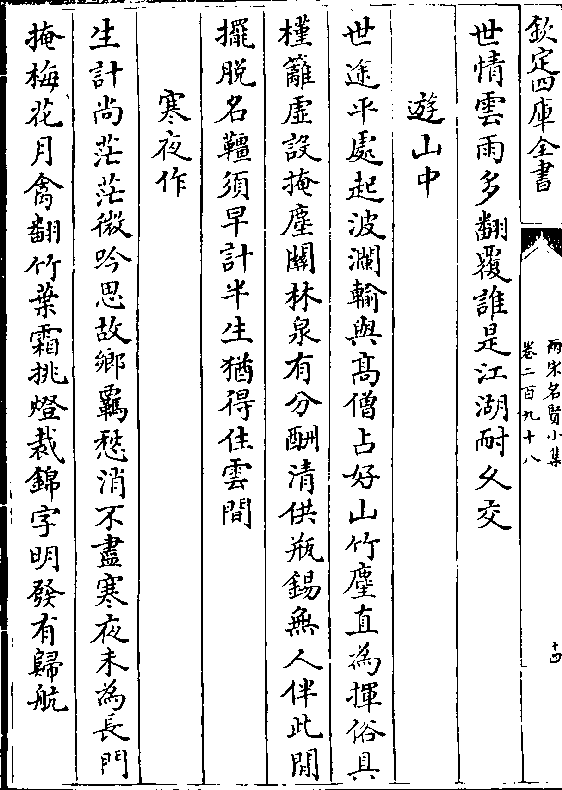 欽定四庫全書
兩宋名賢小集
卷二百九十八
十四
世情雲雨多翻覆誰是江湖耐久交
遊山中
世途平處起波瀾輸與髙僧占好山竹麈直為揮俗具
槿籬虛設掩塵關林泉有分酬清供瓶錫無人伴此閒
擺脫名韁須早計半生猶得住雲間
寒夜作
生計尚茫茫微吟思故鄉羈愁消不盡寒夜未為長門
掩梅花月禽翻竹葉霜挑燈裁錦字明發有歸航